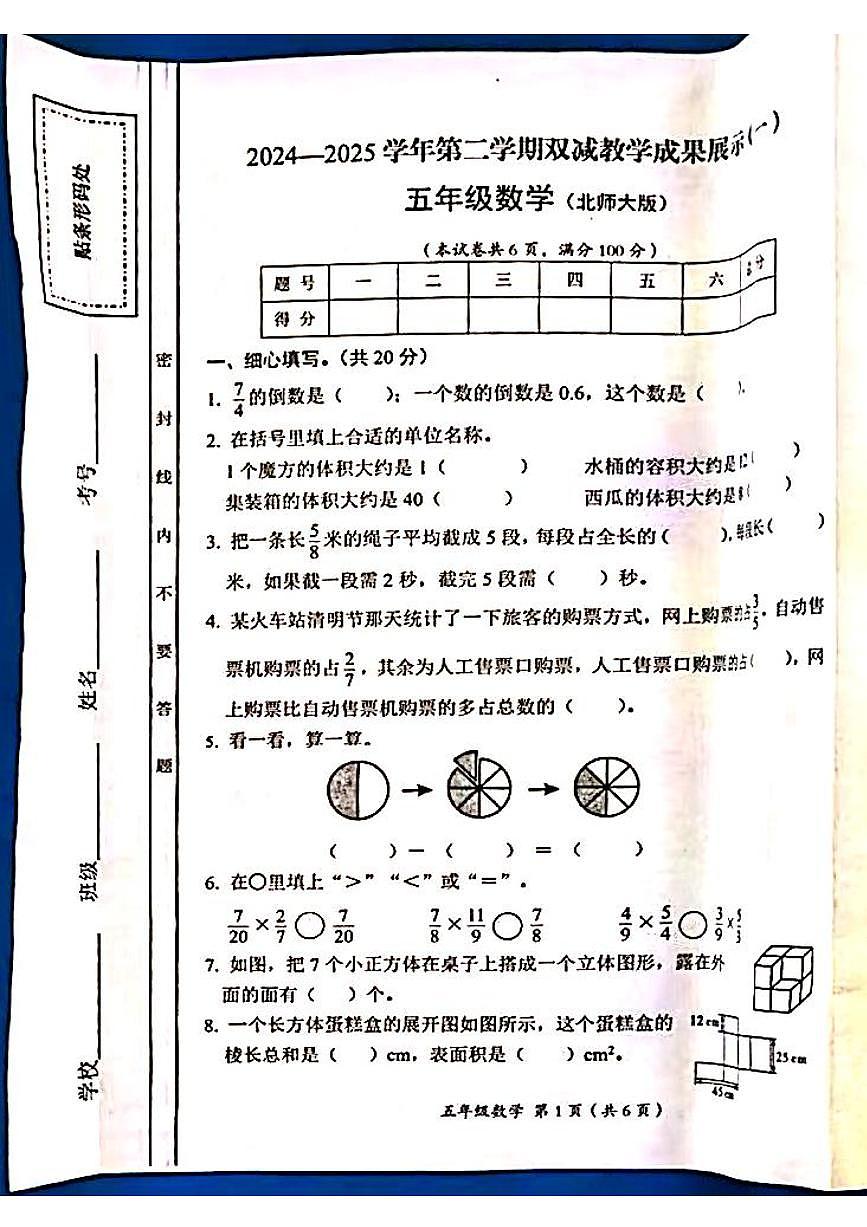 贴条形码处
考号
姓名
班级
学校
密封线内不要答题
2024—2025 学年第二学期双减教学成果展示(一)
五年级数学(北师大版)
(本试卷共6页,满分100分)
题号 一 二 三 四 五 六 总分
得分
一、细心填写。(共20分)
1. 7/4的倒数是( );一个数的倒数是0.6,这个数是( ).
2. 在括号里填上合适的单位名称。
1个魔方的体积大约是1( ) 水桶的容积大约是12( )
集装箱的体积大约是40( ) 西瓜的体积大约是8( )
3. 把一条长5/8米的绳子平均截成5段,每段占全长的( ),每段长( )
米,如果截一段需2秒,截完5段需( )秒。
4. 某火车站清明节那天统计了一下旅客的购票方式,网上购票的占3/5,自动售
票机购票的占2/7,其余为人工售票口购票,人工售票口购票的占( ),网
上购票比自动售票机购票的多占总数的( )。
5. 看一看,算一算。
( )-( )=( )
6. 在○里填上“>”“<”或“=”。
7/20×2/7○7/20 7/8×11/9○7/8 4/9×5/4○3/9×5/3
7. 如图,把7个小正方体在桌子上搭成一个立体图形,露在外
面的面有( )个。
8. 一个长方体蛋糕盒的展开图如图所示,这个蛋糕盒的
棱长总和是( )cm,表面积是( )cm²。
12cm
25cm
45cm
五年级数学 第1页(共6页)